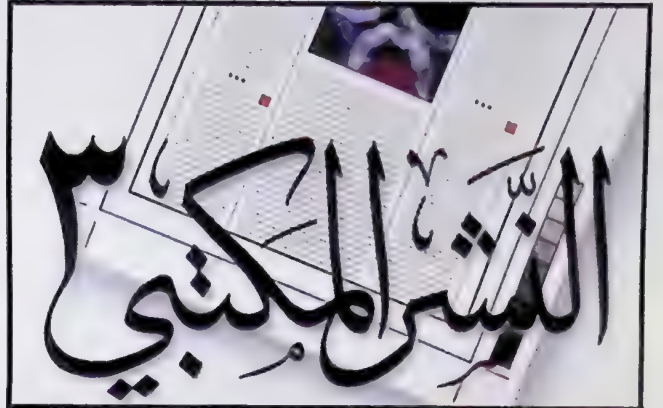 النّشر المكتبي ٣